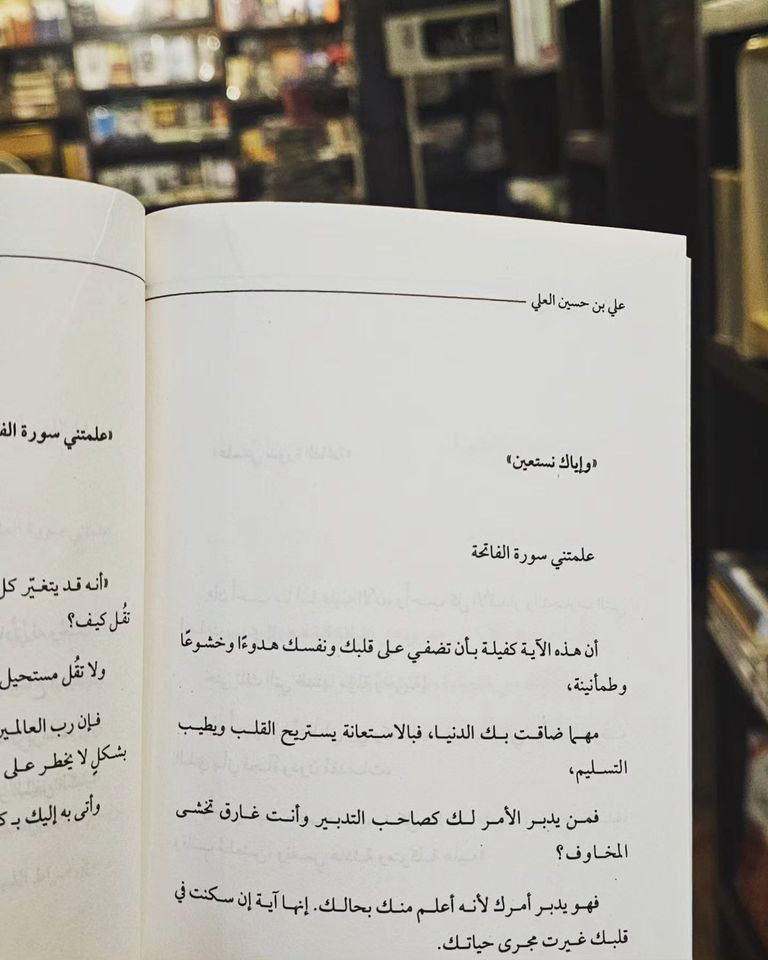 علي بن حسين العلي
«وإياك نستعين»
علمتني سورة الفاتحة
أن هذه الآية كفيلة بأن تضفي على قلبك ونفسك هدوءًا وخشوعًا
وطمأنينة،
مهما ضاقت بك الدنيا، فبالاستعانة يستريح القلب ويطيب
التسليم،
فمن يدبر الأمر لك كصاحب التدبير وأنت غارق تخشى
المخاوف؟
فهو يدبر أمرك لأنه أعلم منك بحالك. إنها آية إن سكنت في
قلبك غيرت مجرى حياتك.
«علمتني سورة
«أنه قد يتغيّر كل
تقُل كيف؟
ولا تقُل مستحيل
فإن رب العالمين
بشكلٍ لا يخطر على
وأتى به إليك